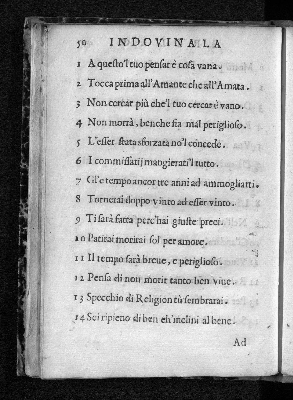 50 INDOVINALA
1 A questo'l tuo pensar è cosa vana.
2 Tocca prima all'Amante che all'Amata.
3 Non cercar più che'l tuo cercar è vano.
4 Non morrà, benche sia mal periglioso.
5 L'esser stata sforzata no'l concede.
6 I commissarij mangierati'l tutto.
7 Gl'e tempo ancor tre anni ad ammogliarti.
8 Tornerai doppo vinto ad esser vinto.
9 Ti sarà fatta perc'hai giuste preci.
10 Patirai morirai sol per amore.
11 Il tempo sarà breue, e periglioso.
12 Pensa di non morir tanto ben viue.
13 Specchio di Religion tù sembrarai.
14 Sei ripieno di ben ch'inclini al bene.
Ad